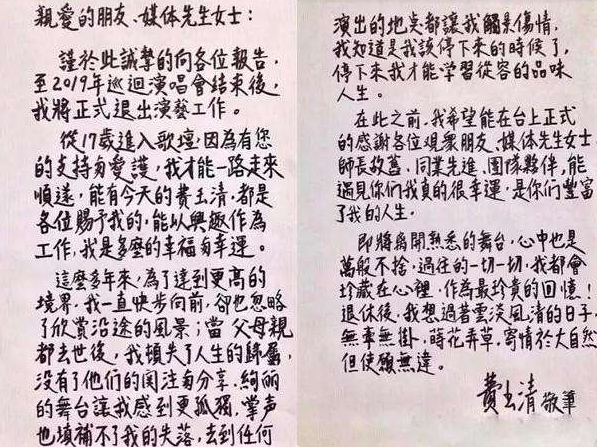 親愛的朋友、媒体先生女士：
謹於此誠摯的向各位報告，
至2019年巡迴演唱會結束後，
我將正式退出演藝工作。
從17歲進入歌壇，因為有您
的支持与愛護，我才能一路走來
順遂，能有今天的費玉清，都是
各位賜予我的，能以興趣作為
工作，我是多麼的幸福与幸運。
這麼多年來，為了達到更高的
境界，我一直快步向前，卻也忽略
了欣賞沿途的風景；當父母親
都去世後，我頓失了人生的歸屬，
沒有了他們的関注与分享，絢麗
的舞台讓我感到更孤獨，掌声
也填補不了我的失落，去到任何
演出的地点都讓我觸景傷情，
我知道是我該停下來的時候了，
停下來我才能学習從容的品味
人生。
在此之前，我希望能在台上正式
的感謝各位观眾朋友、媒体先生女士、
師長故舊、同業先進、團隊夥伴，能
遇見你们我真的很幸運，是你们豐富
了我的人生。
即將离開熟悉的舞台，心中也是
萬般不捨，過往的一切一切，我都會
珍藏在心裡，作為最珍貴的回憶！
退休後，我想過著雲淡風清的日子，
無事無掛，蒔花弄草，寄情於大自然
但使願無違。
費玉清 敬筆